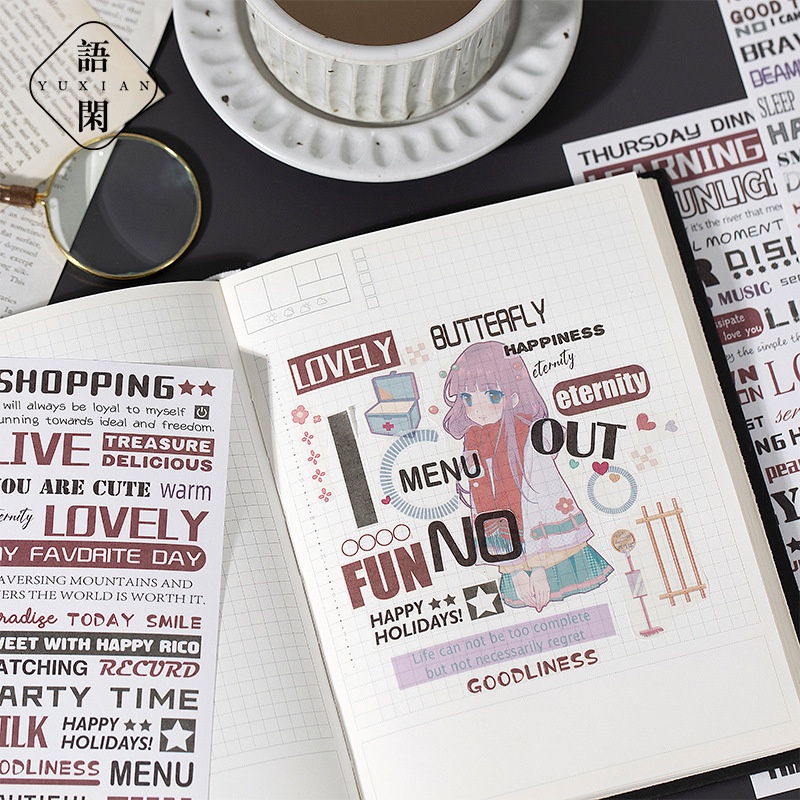 語
YUXIAN
閑
GOOD
NO I CAN
BRAV
SLEEP
THURSDAY DINN
LEARNING
UNLIGH
it's the river that
MOMENT
MUSIC
love you
the simple
SHOPPING
will always be loyal to myself
unning towards ideal and freedom.
LIVE TREASURE
DELICIOUS
YOU ARE CUTE warm
eternity LOVELY
MY FAVDRITE DAY
RAVERSING MOUNTAINS AND
VERS THE WORLD IS WORTH IT.
Paradise TODAY SMILE
SWEET WITH HAPPY RICO
ATCHING RECURD
PARTY TIME
MILK HAPPY
HOLIDAYS!
OODLINESS MENU
LOVELY
BUTTERFLY
HAPPINESS
eternity
eternity
I
OUT
MENU
FUN NO
HAPPY
HOLIDAYS!
Life can not be too complete
but not necessarily regret
GOODLINESS